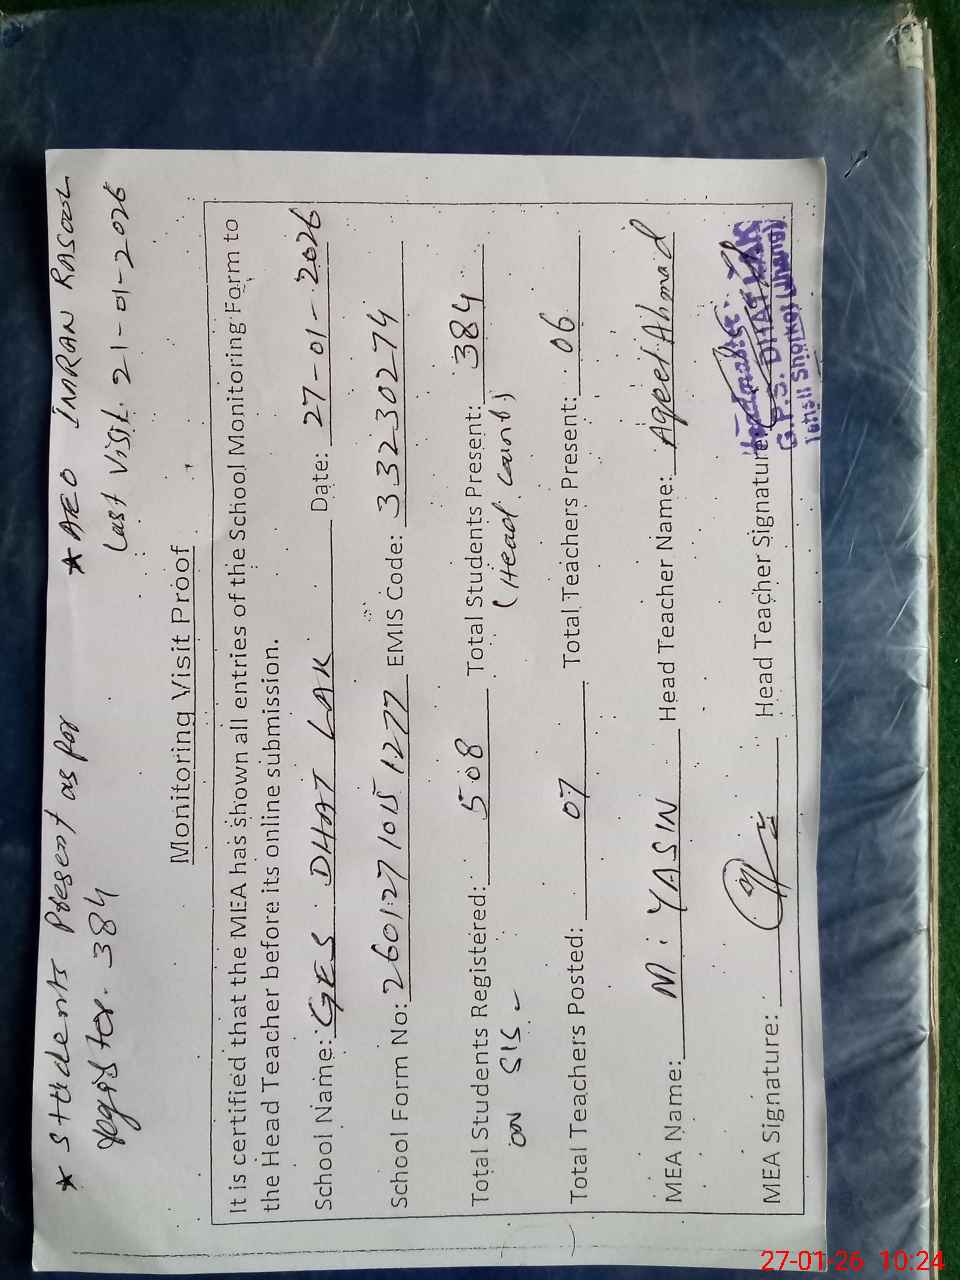 * Students Present as per
register. 384
* AEO IMRAN RASOOL
Last Visit. 21-01-2026
Monitoring Visit Proof
It is certified that the MEA has shown all entries of the School Monitoring Form to
the Head Teacher before its online submission.
School Name: GES DHAT LAK Date: 27-01-2026
School Form No: 260127 1015 1277 EMIS Code: 33230274
Total Students Registered: 508 Total Students Present: 384
on SIS - (Head count)
Total Teachers Posted: 07 Total Teachers Present: 06
MEA Name: M. YASIN Head Teacher Name: Aqeel Ahmad
MEA Signature: Head Teacher Signature
Headmaster
G.P.S. DHAT LAK
Tehsil Shorkot (Jhang)
27-01-26 10:24